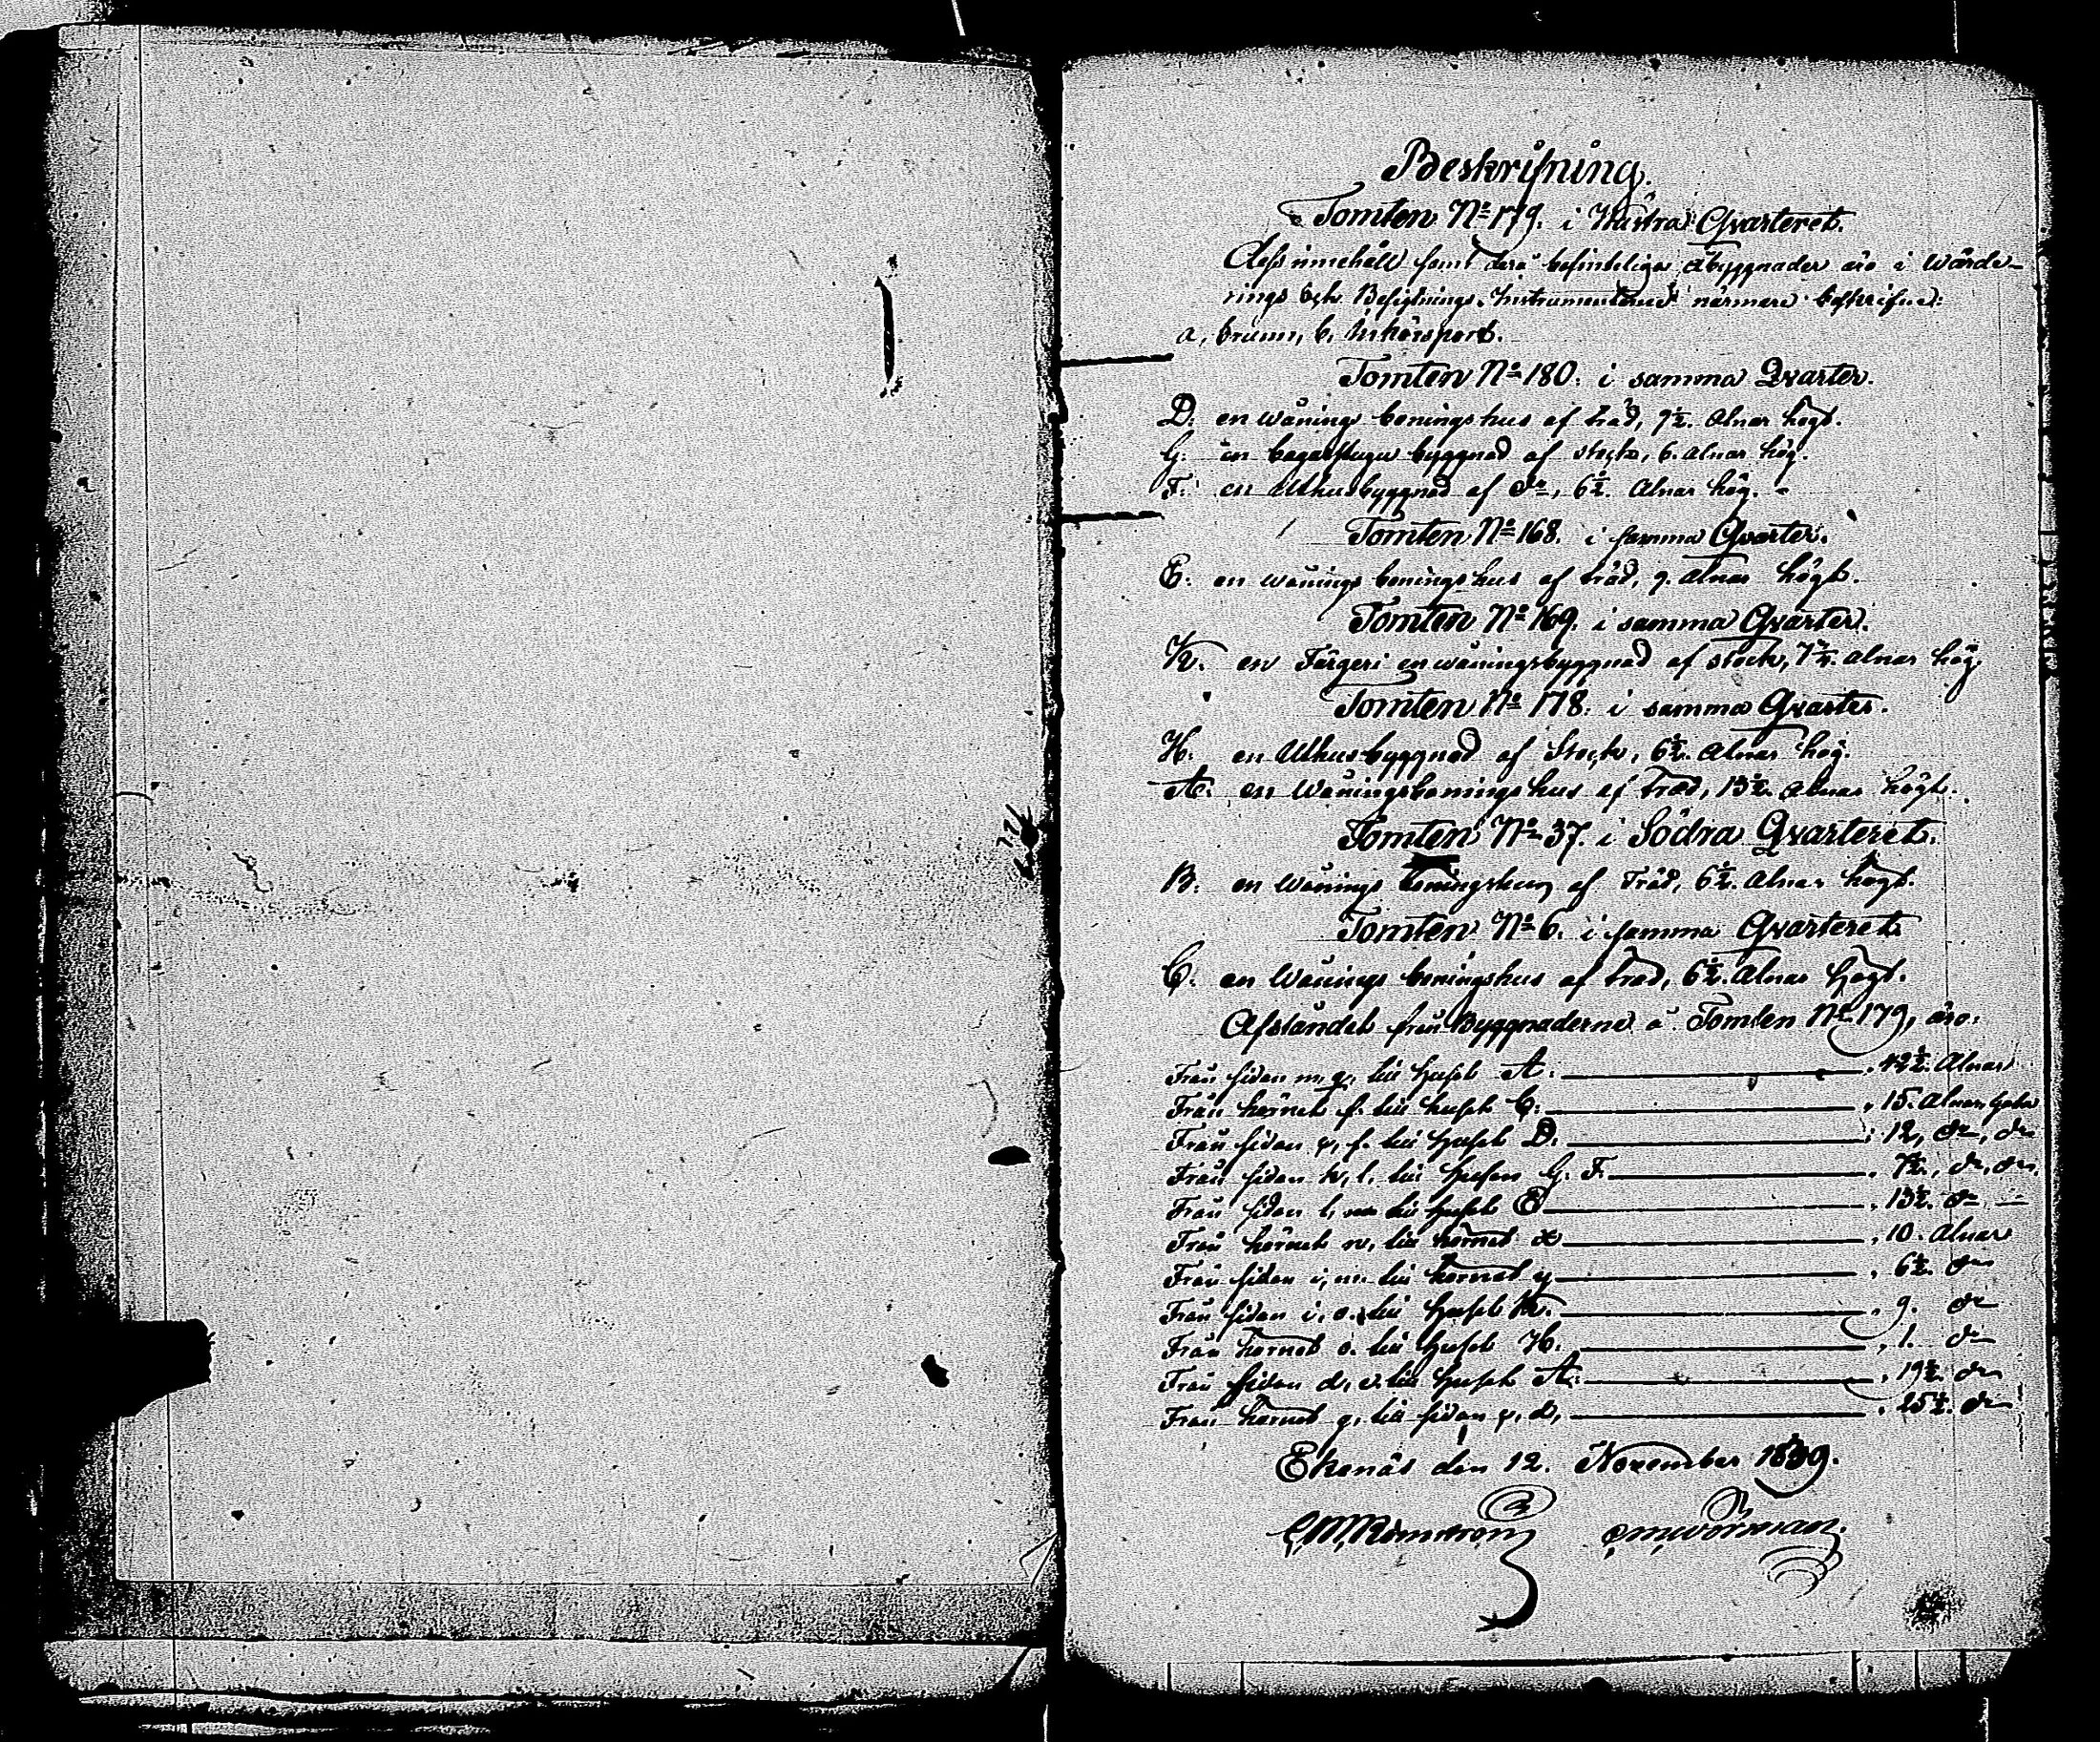 Beskrifning.
Tomten N:o 179. i Wästra Qvarteret.
Dess innehåll samt derå befinteliga åbyggnader äro i Wärde-
rings och Besigtnings-Instrumenterne närmare beskrifne:
a, brunn, b, Inkörsport.
Tomten N:o 180. i samma Qvarter.
D. en Wånings boningshus af träd, 7½. Alnar högt.
G. en bagarstugu byggnad af stock, 6. alnar hög.
F. en Uthusbyggnad af d:o, 6½. Alnar hög.
Tomten N:o 168. i samma Qvarter.
E. en wånings boningshus af träd, 9. alnar högt.
Tomten N:o 169. i samma Qvarter.
K. en Färgeri en wåningsbyggnad af stock, alnar hög.
Tomten N:o 178. i samma Qvarter.
H. en Uthusbyggnad af Stock, 6½. Alnar hög.
A. en Wåningsboningshus af träd, 13½. Alnar högt.
Tomten N:o 37. i Södra Qvarteret.
B. en Wånings boningshus af Träd, 6½. Alnar högt.
Tomten N:o 6. i samma Qvarteret.
C. en Wånings boningshus af träd, 6½. Alnar högt.
Afståndet från Byggnaderne å Tomten N:o 179, äro:
Från sidan m, g, till huset A. 42½. Alnar
Från hörnet f. till huset C. 15. Alnar, gata
Från sidan f. till huset D. 12, d:o, d:o
Från sidan k, l. till husen G. F. 7½., d:o, d:o.
Från sidan l, m till huset E 13½. d:o
Från hörnet n, till hörnet x 10. Alnar
Från sidan i, m. till hörnet y 6½. d:o
Från sidan i, o. till huset K. 9. d:o
Från hörnet o. till huset H. 1. d:o
Från sidan d, till huset A. 19½. d:o
Från hörnet g, till sidan d, 25½. d:o
Ekenäs den 12. November 1839.